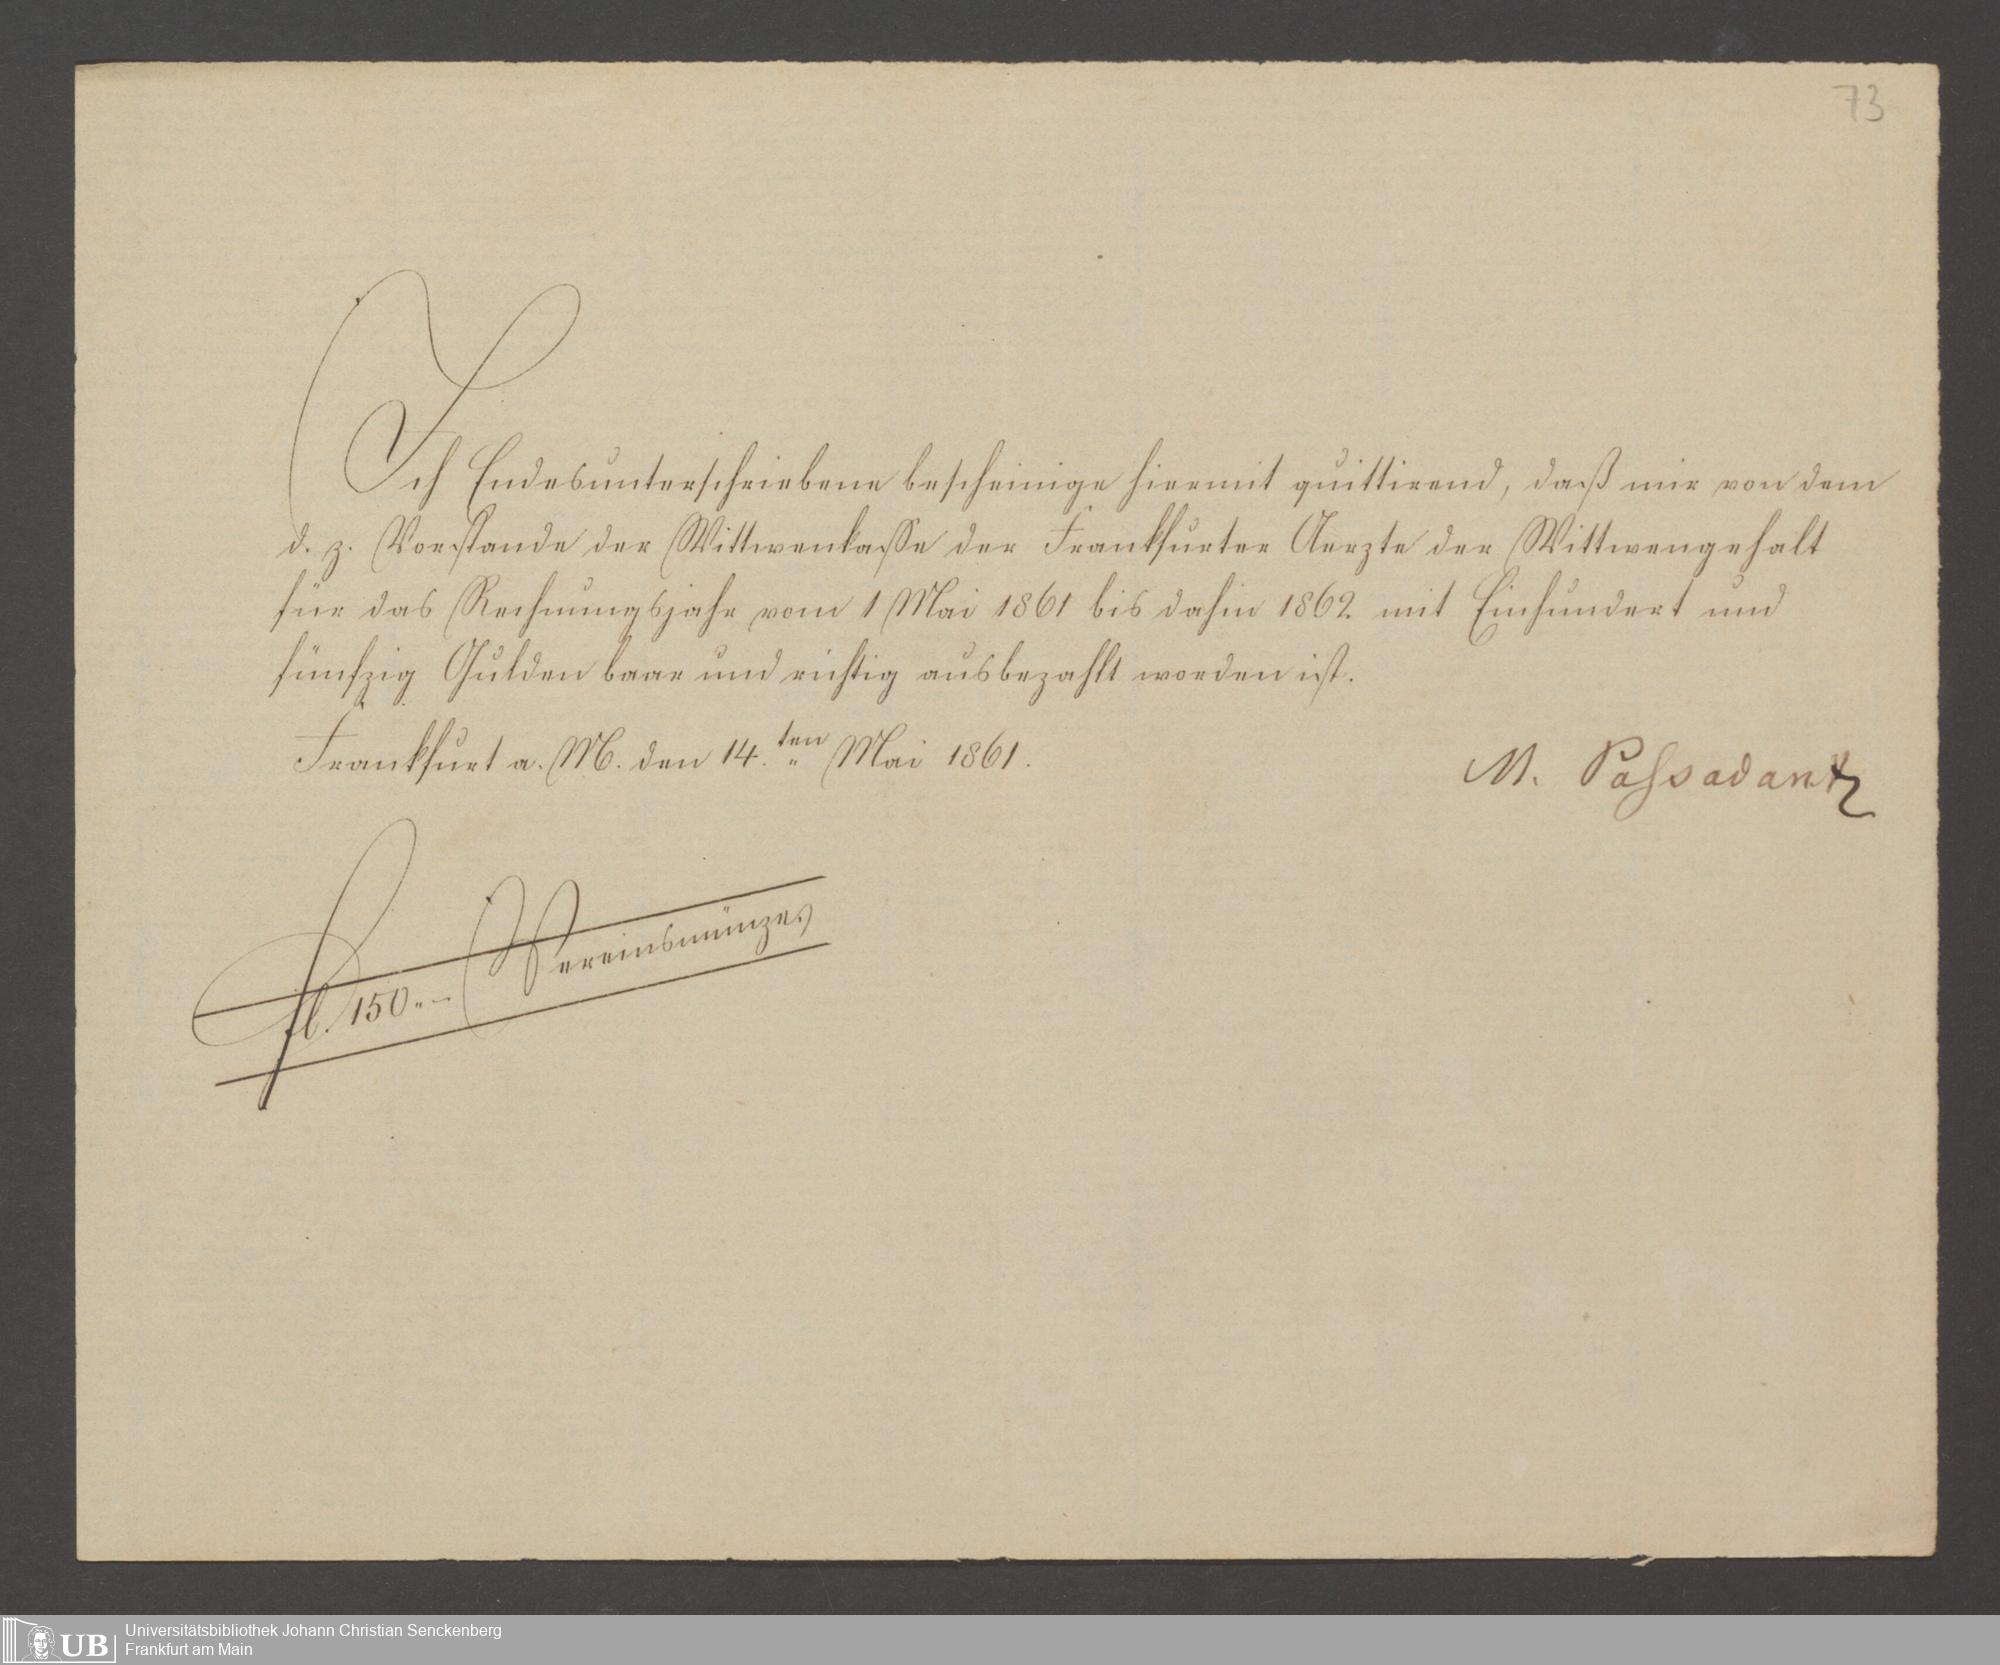 73
Ich Endesunterschriebene bescheinige hiermit quittirend, daß mir von dem
d. z. Vorstande der Wittwenkasse der Frankfurter Aerzte der Wittwengehalt
für das Rechnungsjahr vom 1 Mai 1861 bis dahin 1862 mit Einhundert und
fünfzig Gulden baar und richtig ausbezahlt worden ist.
Frankfurt a. M. den 14.ten Mai 1861.
M. Passavant
fl. 150.- Vereinsmünze.
UB
Universitätsbibliothek Johann Christian Senckenberg
Frankfurt am Main